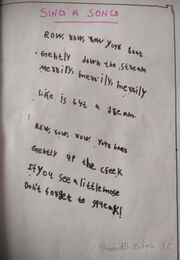 SING A SONG
Row, row, row your boat
Gently down the stream
Merrily, merrily, merrily
Life is but a dream.
Row, row, row, your boat
Gently up the creek
If you see a little mose
Don't forget to squeak!